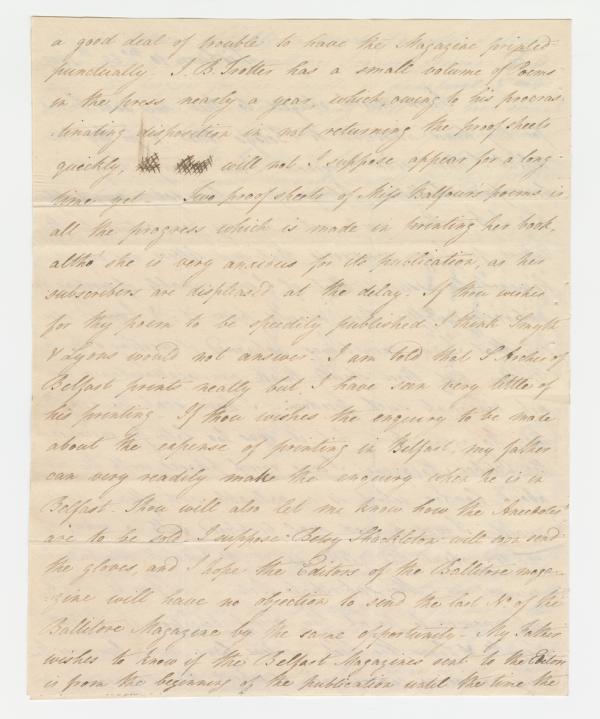 a good deal of trouble to have the Magazine printed
punctually. J. B. Trotter has a small volume of Poems
in the press nearly a year, which, owing to his procras
tinating disposition in not returning the proof sheets
quickly, will not I suppose appear for a long
time yet - Two proof sheets of Miss Balfours poems is
all the progress which is made in printing her book,
altho' she is very anxious for its publication, as her
subscribers are displeased at the delay. If thou wishes
for thy poem to be speedily published I think Smyth
& Lyons would not answer. I am told that S Archer of
Belfast prints neatly but I have seen very little of
his printing - If thou wishes the enquiry to be made
about the expense of printing in Belfast, my father
can very readily make the enquiry when he is in
Belfast. Thou will also let me know how the Anecdotes
are to be sold. I suppose Betsy Shackleton will soon send
the gloves, and I hope the Editors of the Ballitore maga-
zine will have no objection to send the last No. of the
Ballitore Magazine by the same opportunity - My Father
wishes to know if the Belfast Magazines sent to the Editors
is from the beginning of the publication until the time the